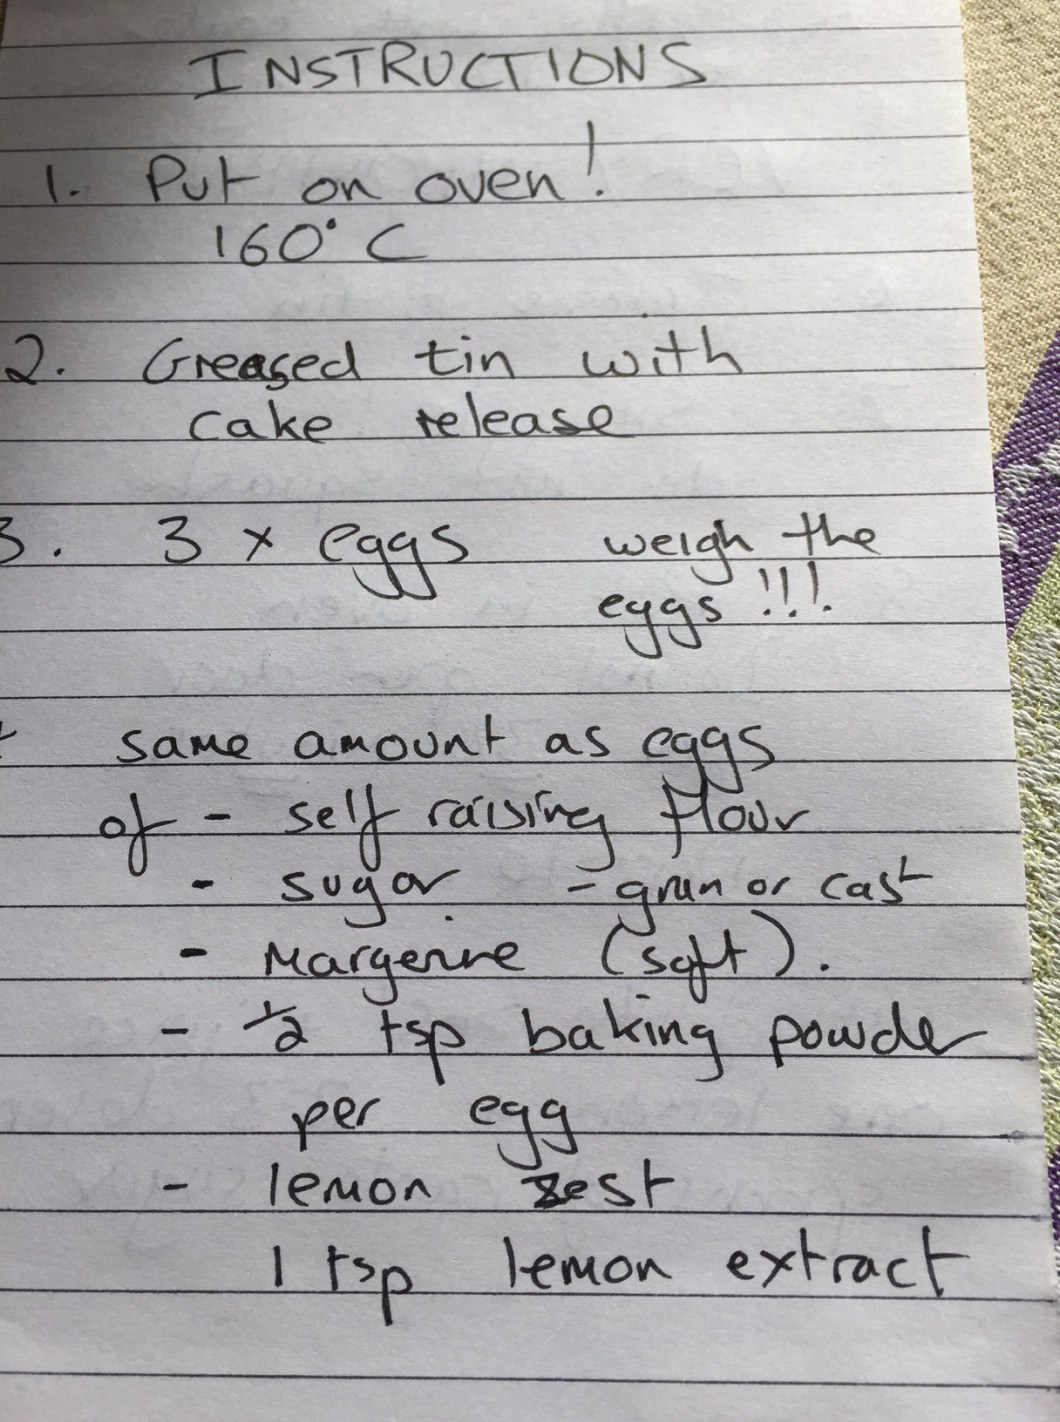 INSTRUCTIONS
1. Put on oven!
160° C
2. Greased tin with
cake release
3. 3 x eggs weigh the
eggs !!!.
same amount as eggs
of - self raising flour
- sugar - gran or cast
- Margerine (soft).
- 1/2 tsp baking powder
per egg
- lemon zest
1 tsp lemon extract